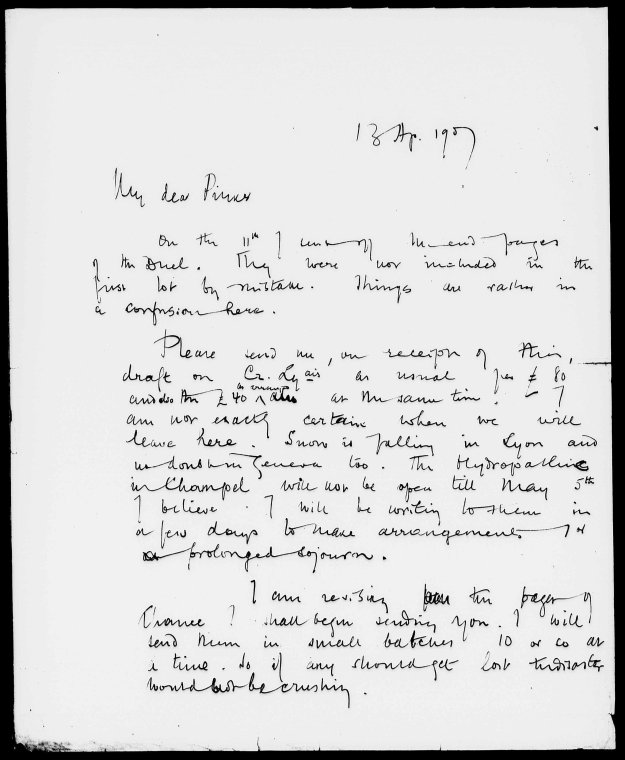 13 Ap. 1907
My dear Pinker
On the 11th I sent off the end pages
of the Duel. They were not included in the
first lot by mistake. Things are rather in
a confusion here.
Please send me, on receipt of this,
draft on Cr. Lyais as usual for £ 80
and also the £40 as at the same time. I
am not exactly certain when we will
leave here. Snow is falling in Lyon and
no doubt in Geneva too. The Hydropathic
in Champel will not be open till May 5th
I believe. I will be writing to them in
a few days to make arrangements for
a prolonged sojourn.
I am revising the pages of
Chance I shall begin sending you. I will
send them in small batches 10 or so at
a time. So if any should get lost the disaster
would not be crushing.